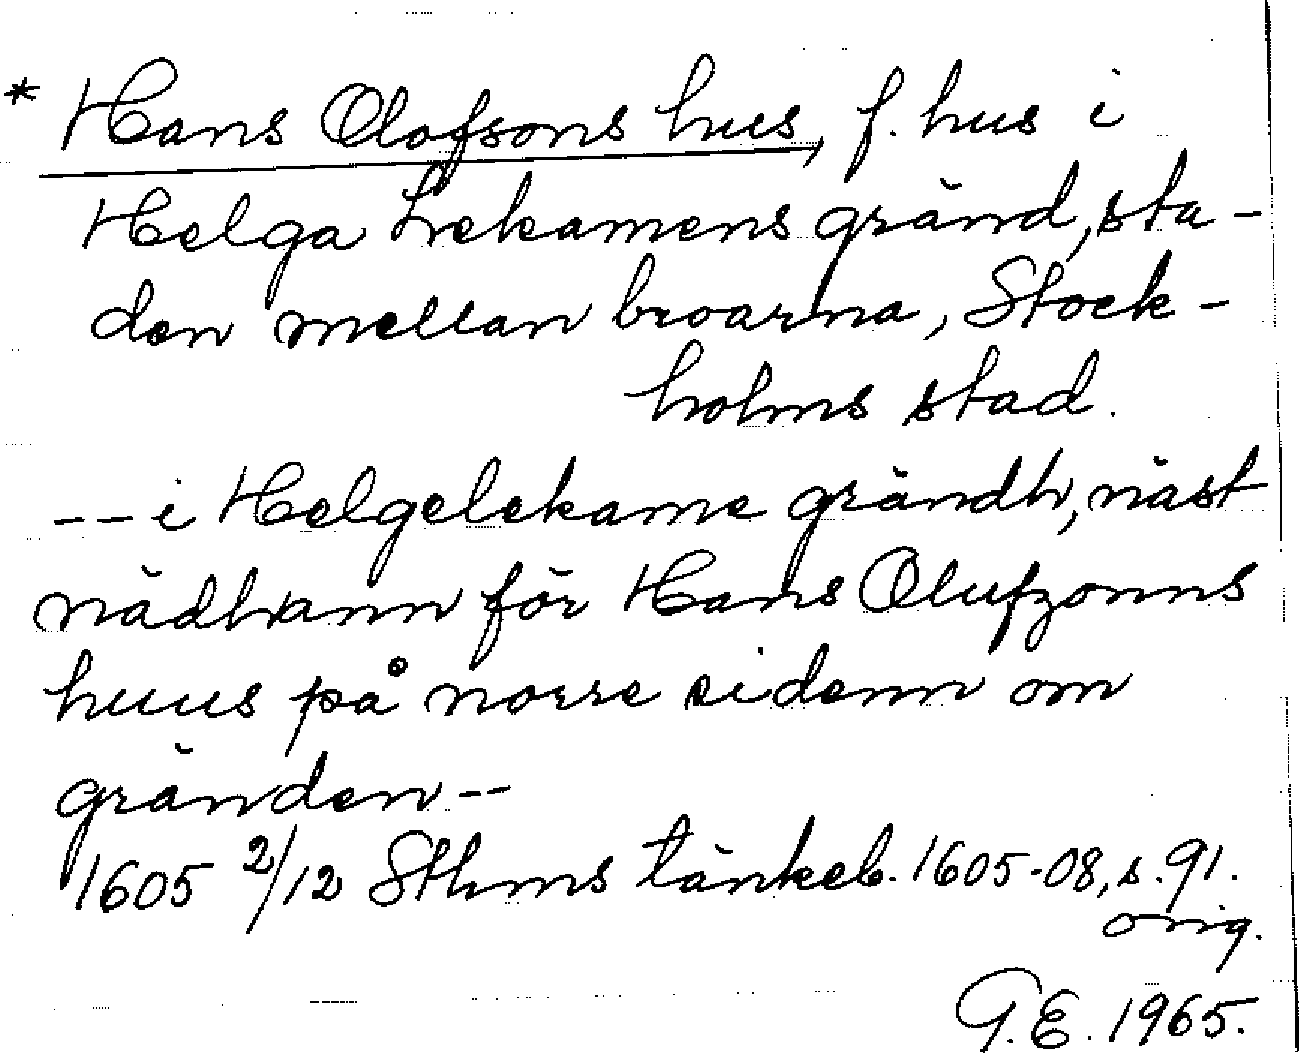 * Hans Olofsons hus, f. hus i
Helga Lekamens gränd, sta-
den mellan broarna, Stock-
holms stad.
-- i Helgelekame grändh, näst
nädhann för Hans Olufzonns
huus på norre sidenn om
gränden --
1605 2/12 Sthms tänkeb. 1605-08, s. 91.
orig.
G.E. 1965.